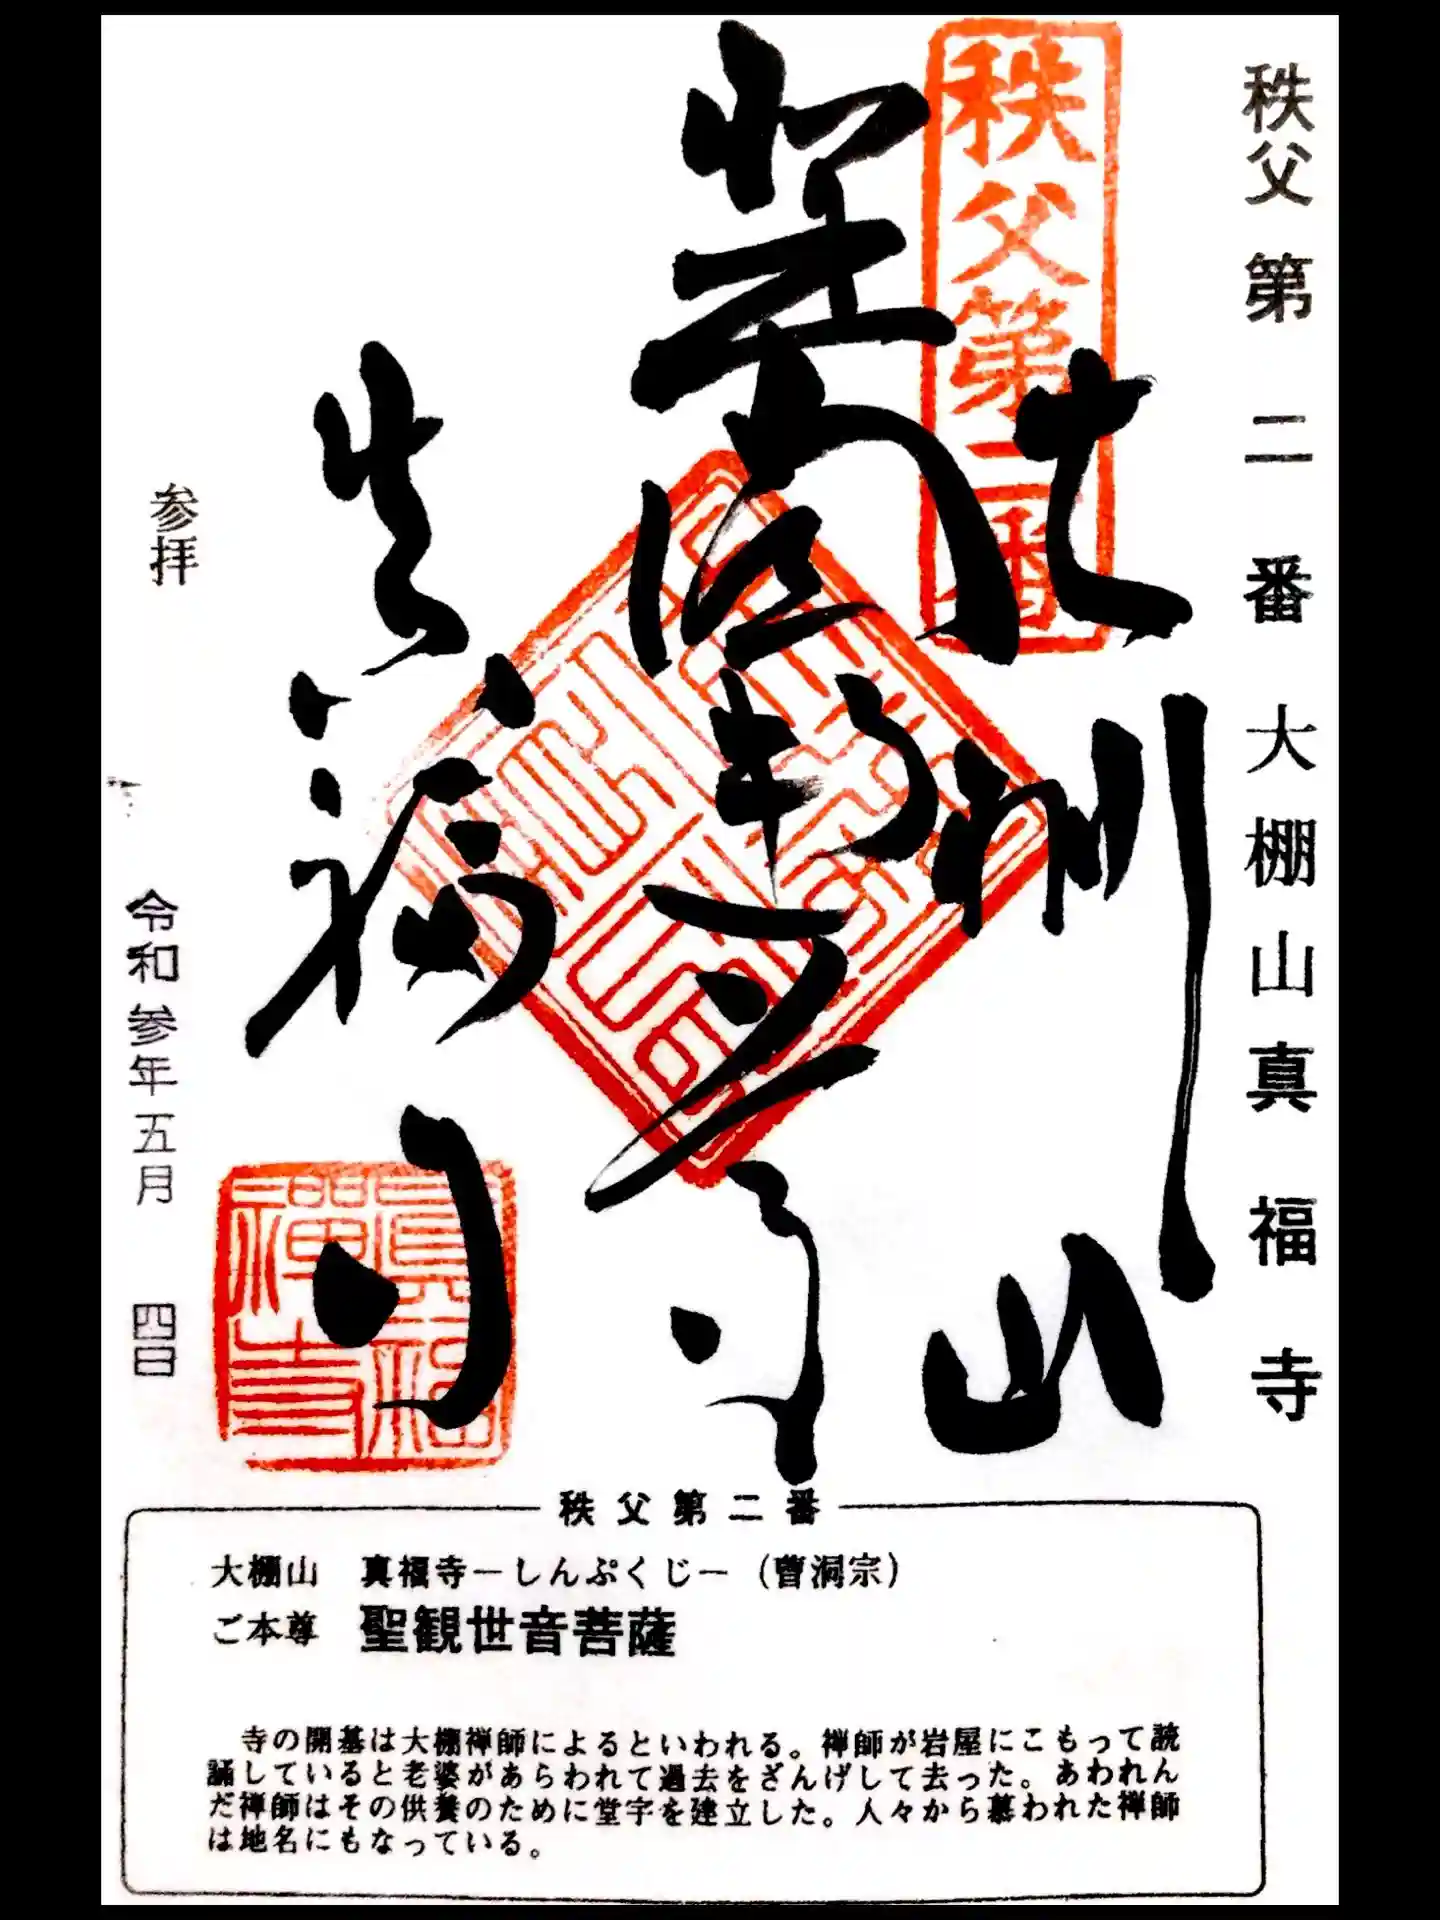 秩父第二番大棚山真福寺
秩父第二番
大棚山
真福寺
参拝
令和参年五月 四日
秩父第二番
大棚山 真福寺－しんぷくじ－(曹洞宗)
ご本尊 聖観世音菩薩
寺の開基は大棚禅師によるといわれる。禅師が岩屋にこもって読
誦していると老婆があらわれて過去をざんげして去った。あわれん
だ禅師はその供養のために堂宇を建立した。人々から慕われた禅師
は地名にもなっている。